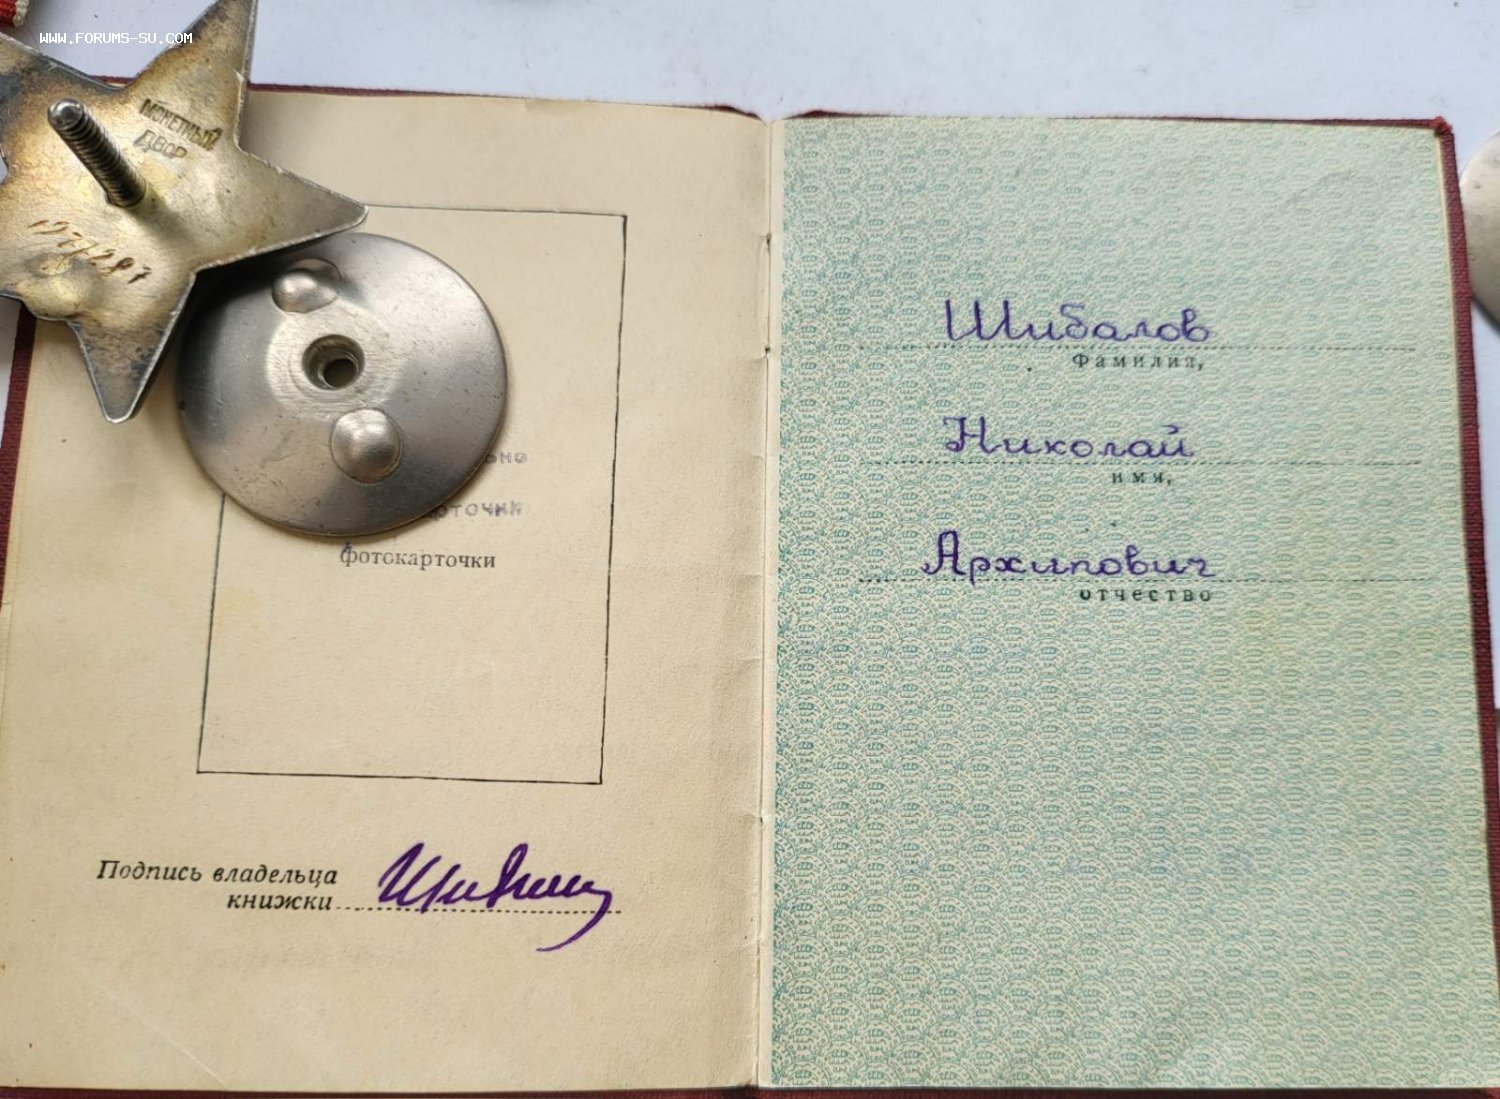 WWW.FORUMS-SU.COM
МОНЕТНЫЙ
ДВОР
фотокарточки
Подпись владельца
книжки
Шибалов
Фамилия,
Николай
имя,
Архипович
отчество